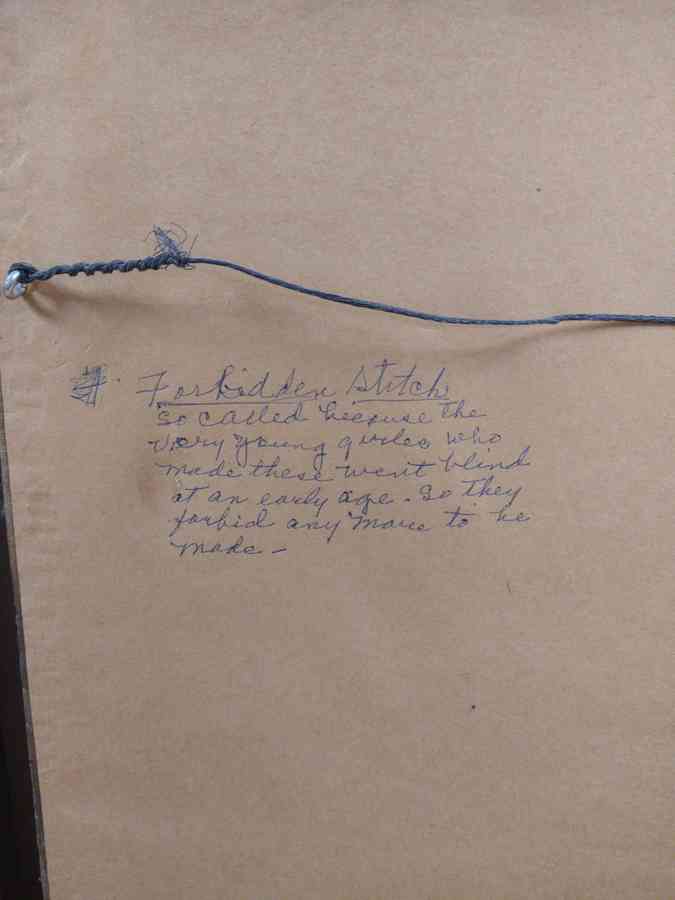 #. Forbidden Stitch
So called because the
very young girles who
made these went blind
at an early age. So they
forbid any more to be
made -